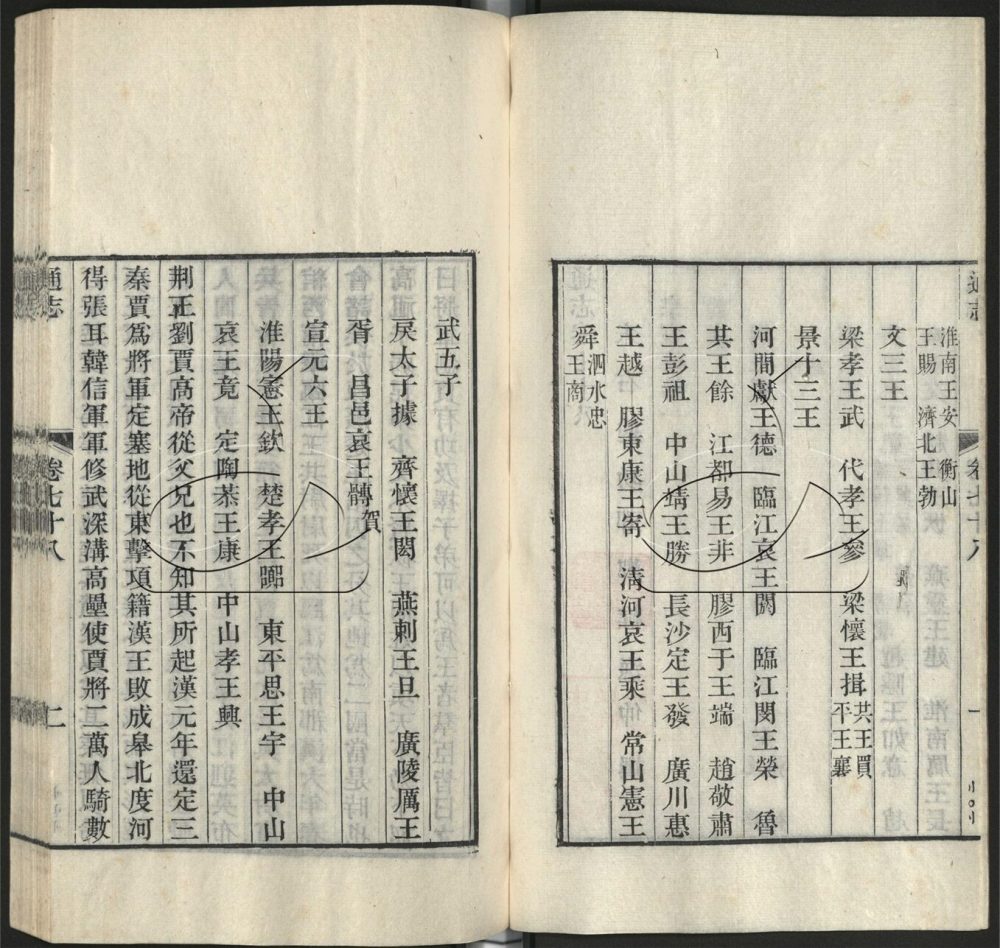 通志
卷七十八
一
淮南王安 衡山
王賜 濟北王勃
文三王
梁孝王武 代孝王參 梁懷王揖 共王買
平王襄
景十三王
河間獻王德 臨江哀王閼 臨江閔王榮 魯
共王餘 江都易王非 膠西于王端 趙敬肅
王彭祖 中山靖王勝 長沙定王發 廣川惠
王越 膠東康王寄 清河哀王乘 常山憲王
舜 泗水忠
王商
武五子
戾太子據 齊懷王閎 燕刺王旦 廣陵厲王
胥 昌邑哀王髆 賀
宣元六王
淮陽憲王欽 楚孝王囂 東平思王宇 中山
哀王竟 定陶恭王康 中山孝王興
荆王劉賈高帝從父兄也不知其所起漢元年還定三
秦賈為將軍定塞地從東擊項籍漢王敗成皋北度河
得張耳韓信軍軍修武深溝高壘使賈將二萬人騎數
通志
卷七十八
二